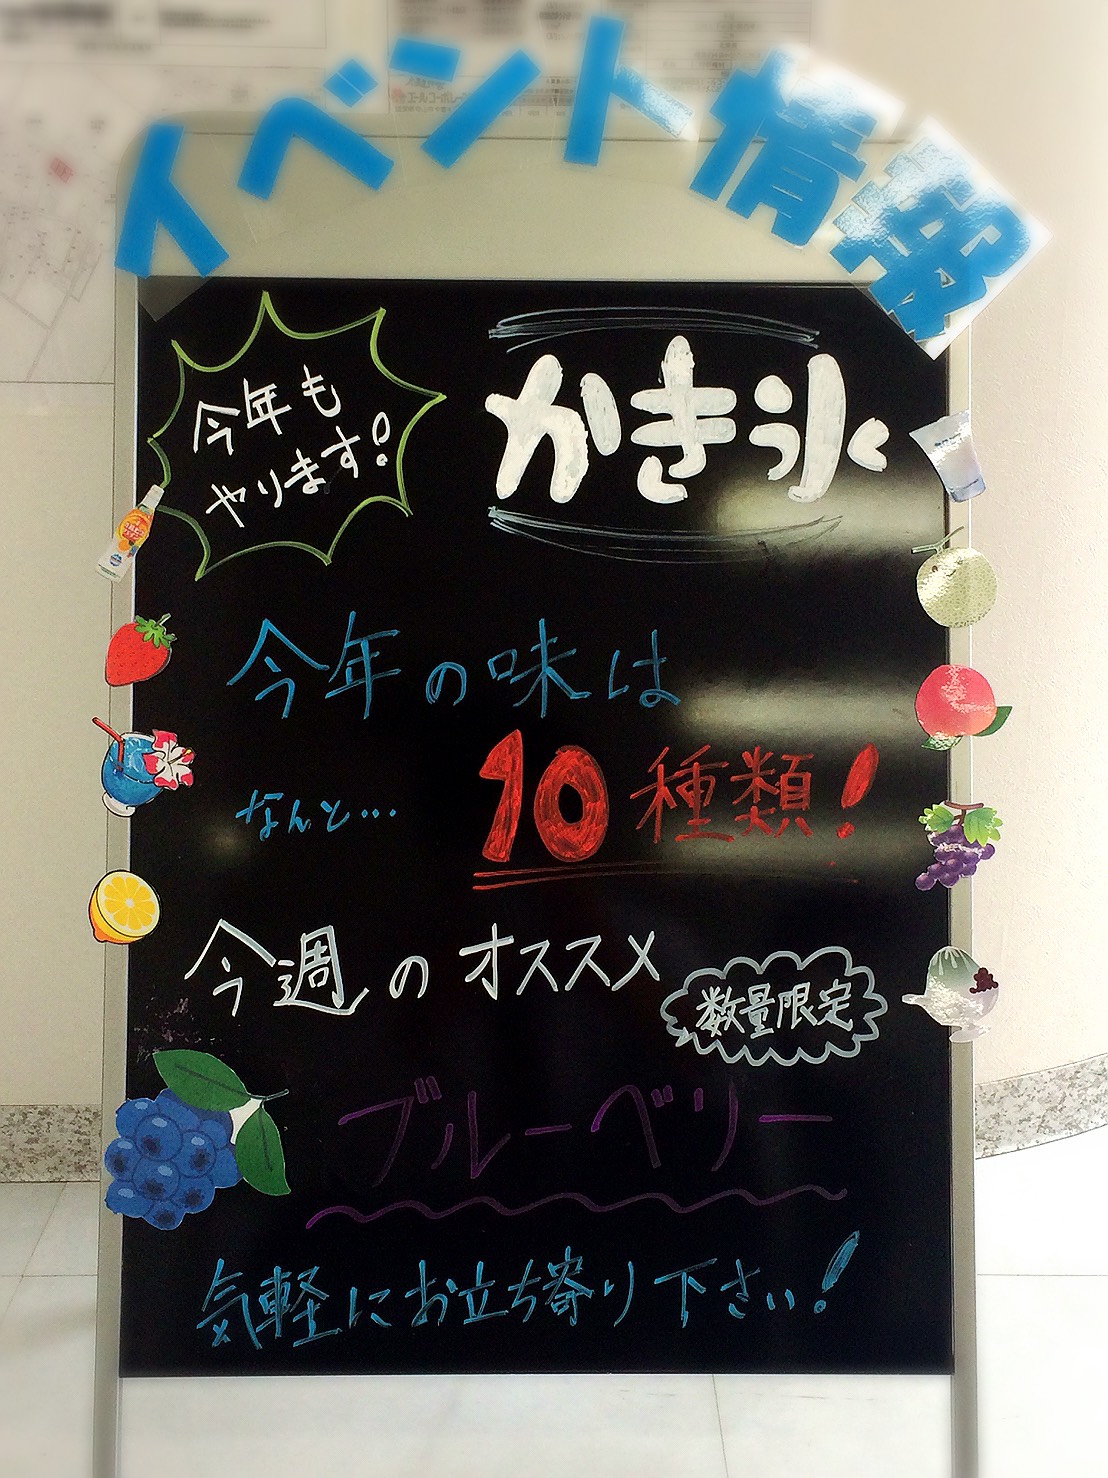 イベント情報
今年も
やります!
かき氷
今年の味は
なんと… 10種類!
今週のオススメ
数量限定
ブルーベリー
気軽にお立ち寄り下さい!